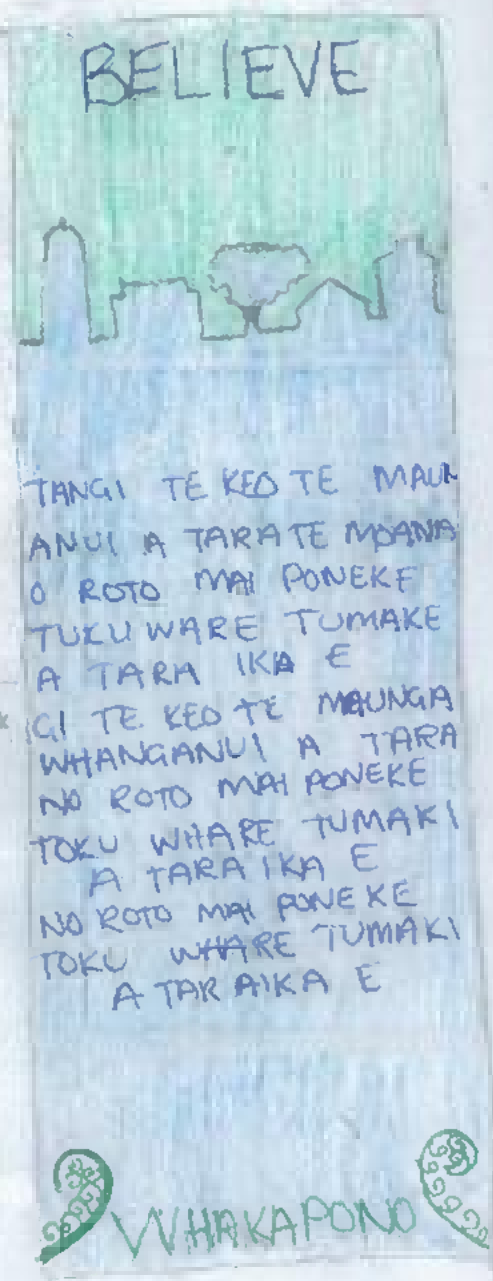 BELIEVE
TANGI TE KEO TE MAUN
ANUI A TARA TE MOANA
O ROTO MAI PONEKE
TUKU WARE TUMAKE
A TARA IKA E
GI TE KEO TE MAUNGA
WHANGANUI A TARA
NO ROTO MAI PONEKE
TOKU WHARE TUMAKI
A TARA IKA E
NO ROTO MAI PONEKE
TOKU WHARE TUMAKI
A TAR AIKA E
WHAKAPONO